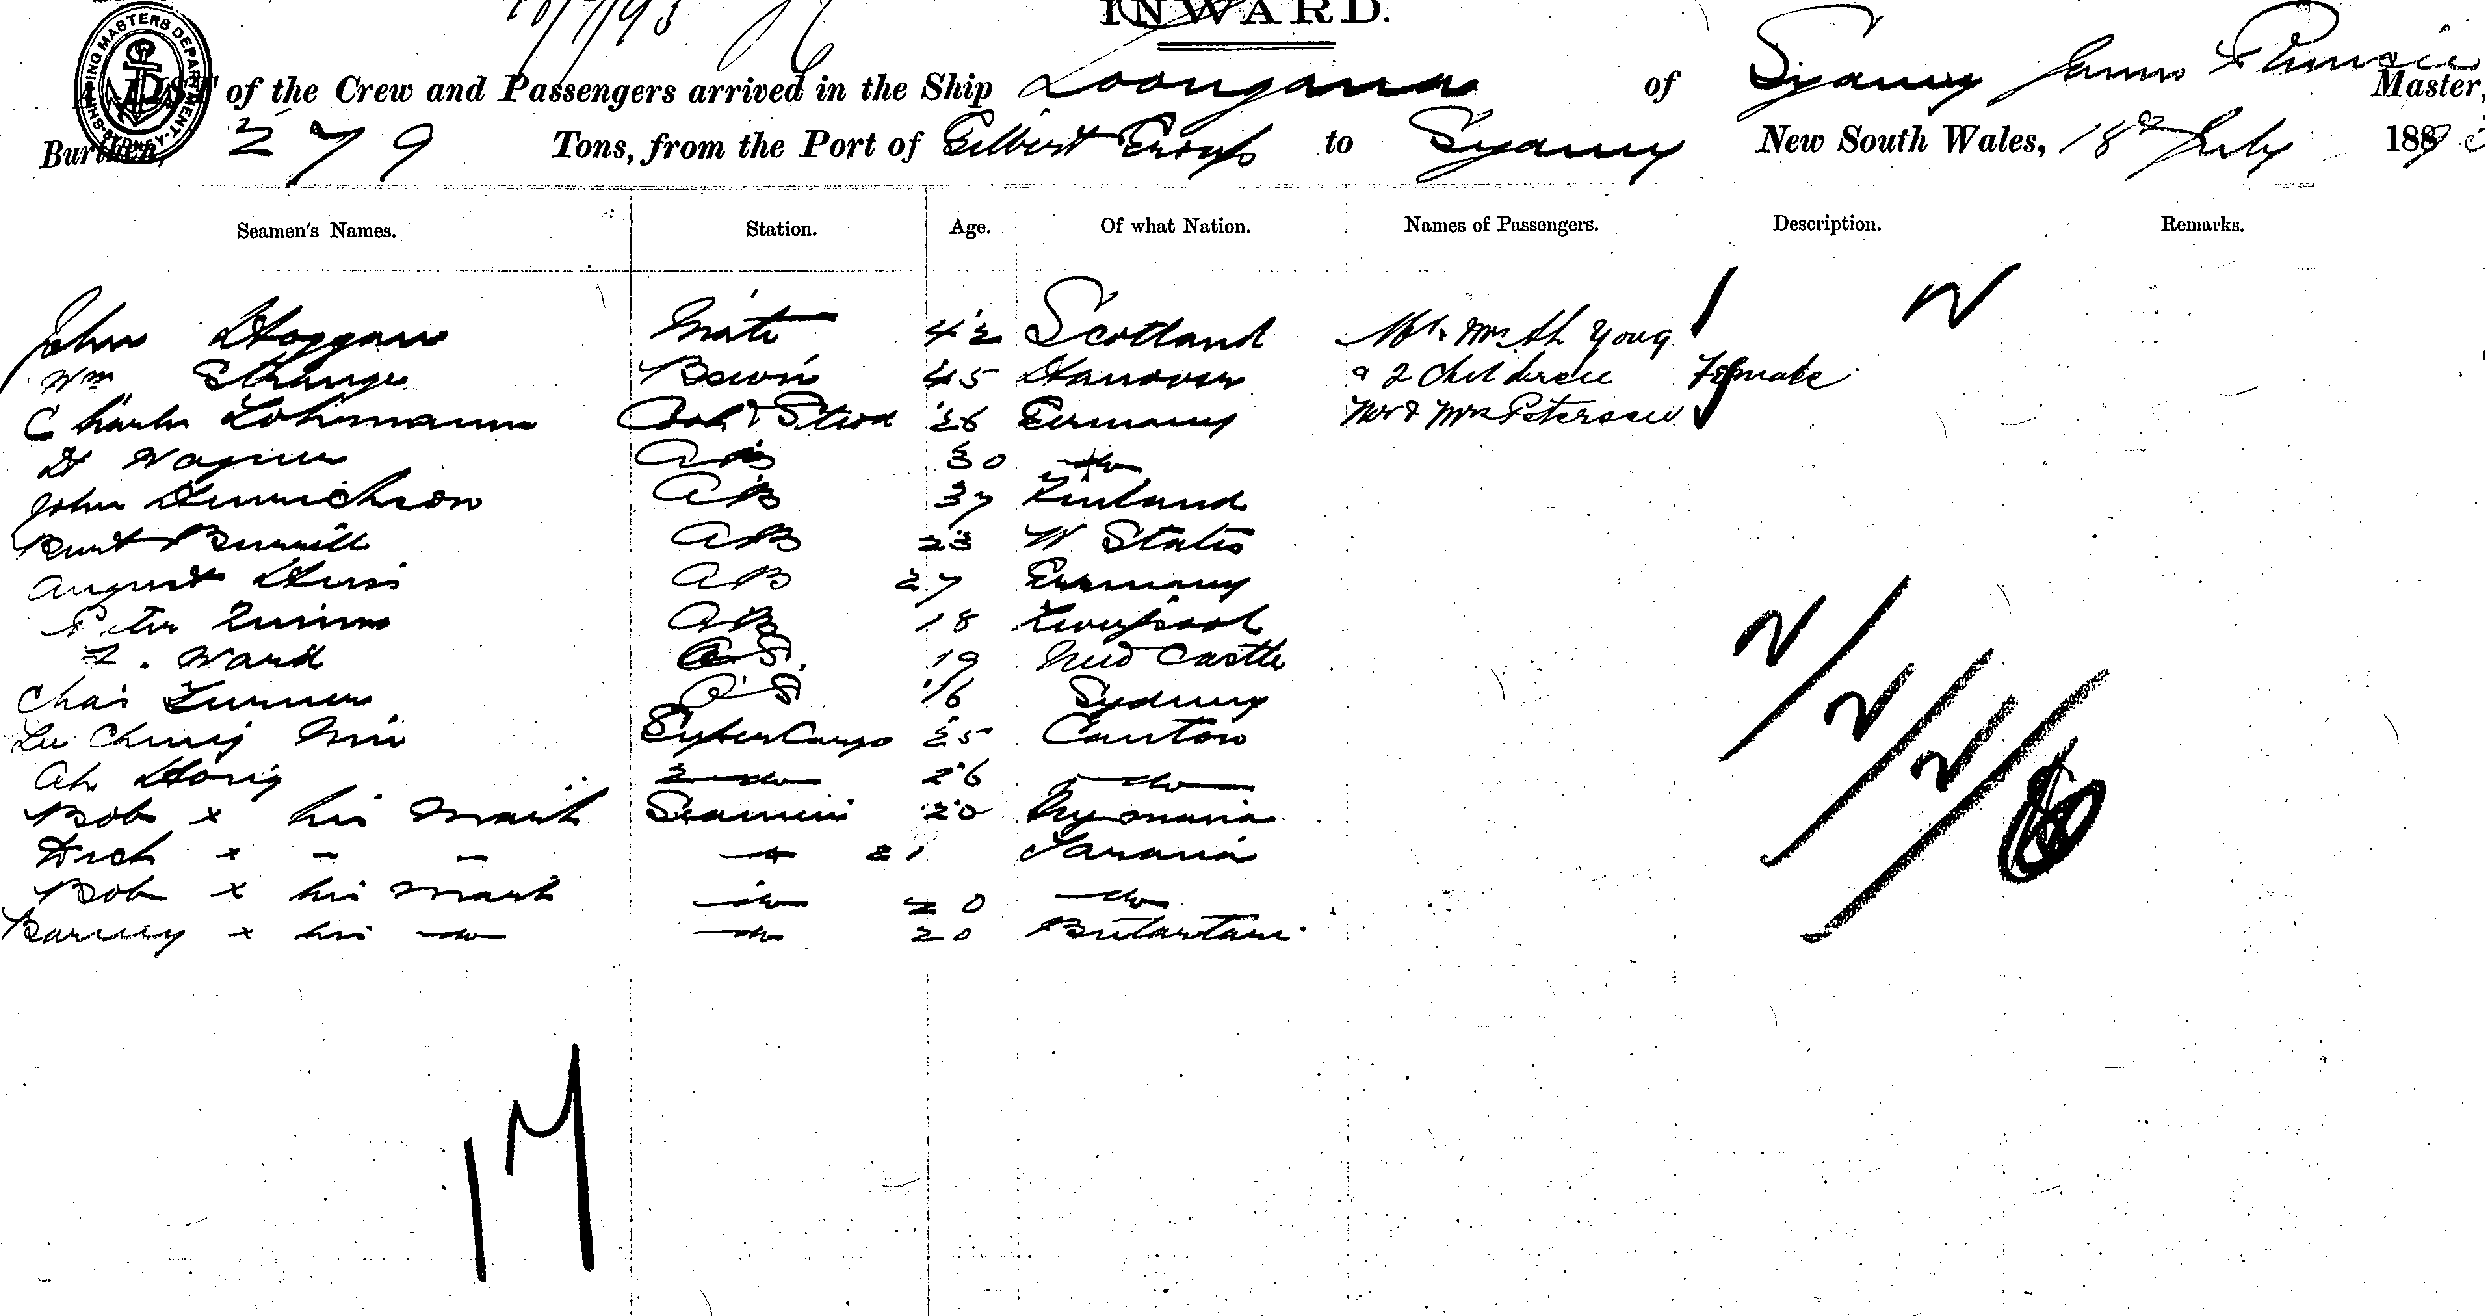 SHIPPING MASTERS DEPARTMENT
18/7/93
INWARD.
A LIST of the Crew and Passengers arrived in the Ship Loongana of Sydney James Master,
Burthen, 279 Tons, from the Port of Gilbert Group to Sydney New South Wales, 18th July 189
Seamen's Names. Station. Age. Of what Nation. Names of Passengers. Description. Remarks.
John Hoggan Mate 42 Scotland Mr. Mrs Ah Young
Wm Strange Bos'n 45 Hanover & 2 children Female
Charles Lohmann Cook & Stwd 36 Germany Mr & Mrs Petersen
H Wagner AB 30 do
John Hinrichson AB 37 Finland
Burt Burrill AB 23 U States
August AB 27 Germany
Peter Quinn AB 18 Liverpool
Ward OS. 19 New Castle
Chas Turner OS 16 Sydney
Cargo 25 Canton
Ah Hong 2 do 26 do
Bob x his mark Seaman 20
Dick x - - do 21 Tarawa
Bob x his mark do 20 do
Barney x his do do 20 Butaritari
17